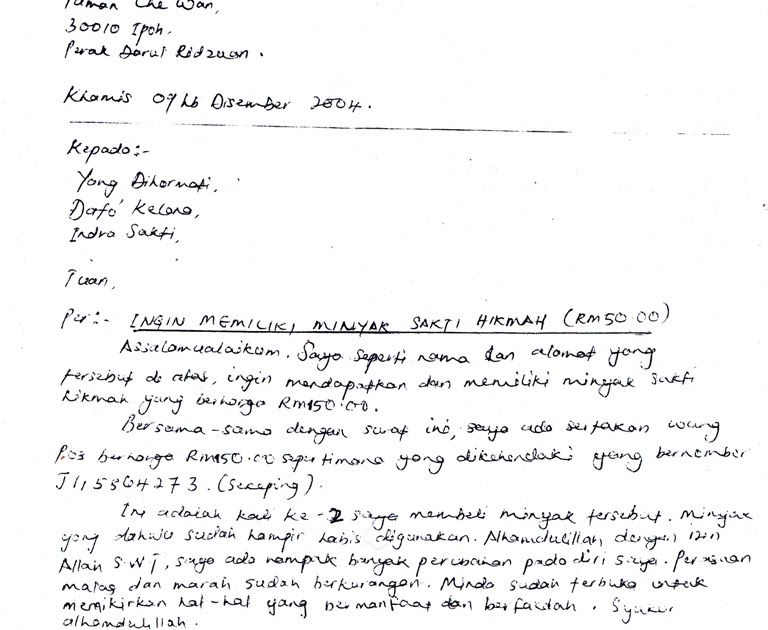 Taman Che Wan,
30010 Ipoh.
Perak Darul Ridzuan.
Khamis 09hb Disember 2004.
Kepada:-
Yang Dihormati,
Dato' Kelana,
Indra Sakti,
Tuan,
Per:- INGIN MEMILIKI MINYAK SAKTI HIKMAH (RM50.00)
Assalamualaikum. Saya seperti nama dan alamat yang
tersebut di atas, ingin mendapatkan dan memiliki minyak sakti
hikmah yang berharga RM150.00.
Bersama-sama dengan surat ini, saya ada sertakan wang
Pos berharga RM150.00 sepertimana yang dikehendaki yang bernombor
(Sekeping).
Ini adalah kali ke-2 saya membeli minyak tersebut. Minyak
yang dahulu sudah hampir habis digunakan. Alhamdulillah dengan izin
Allah SWT, saya ada nampak banyak perubahan pada diri saya. Perasaan
malas dan marah sudah berkurangan. Minda sudah terbuka untuk
memikirkan hal-hal yang bermanfaat dan berfaedah. Syukur
alhamdulillah.